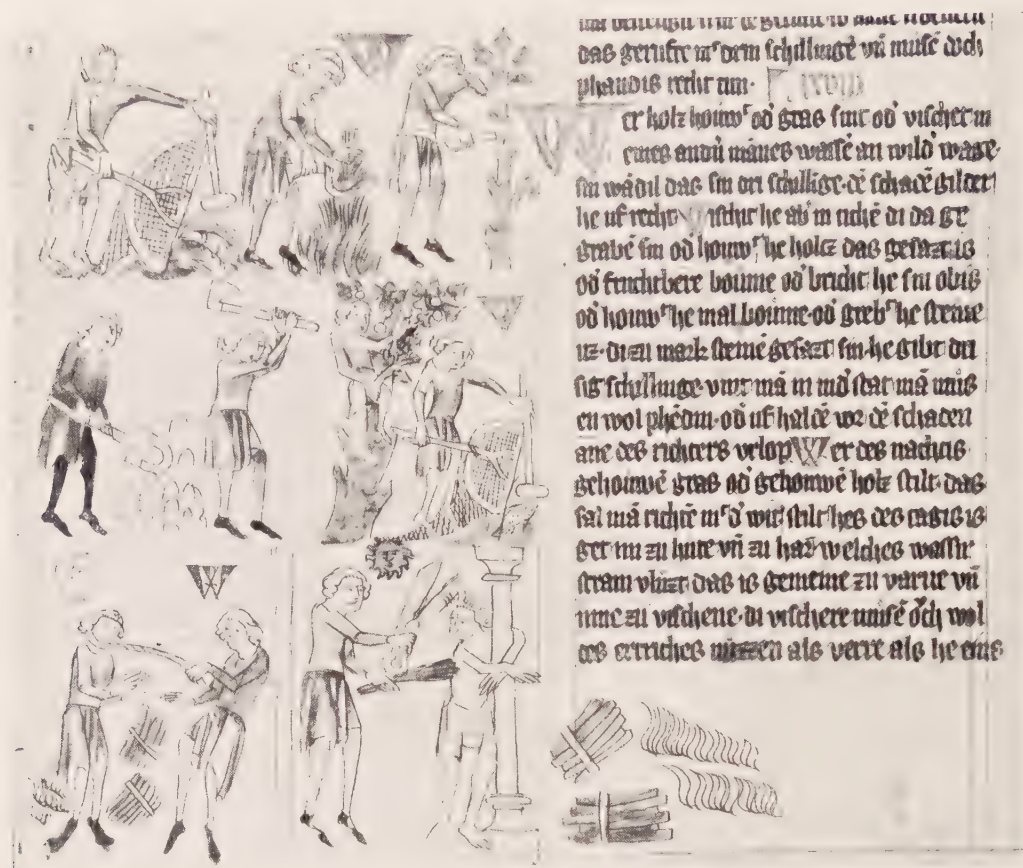 das gerufte mͬ dem schillingē vñ musē doch
phandis recht tun·
W er holz houwͬ od' gras snit od' vischet in
eines andn̄ mānes wassē an wild' wage·
sin wādil das sin dri schillīge· dē schadē gildet
he uf recht· vischit he ab' in tichē di da ge
grabē sin od' houwͬ he holcz das gesazt is
od' fruchtbere boume od' bricht he sin obis
od' houwͬ he mal boume· od' grebͬ he steine
uz· di zu mark steinē gesazt sin· he gibt dri
sig schillinge· vint mā in ind' stat mā mus
en wol phēdin· od' uf haldē vor dē schaden
ane des richters vrlop W er des nachtis
gehouwē gras od' gehouwē holz stilt· das
sal mā richtē mͬ d' wit· stilt hes des tagis is
get im zu hute vñ zu har· welches wassir
stram vlizt· das is gemeine zu varne vñ
inne zu vischene· di vischere musē och wol
des ertriches nutzen als verre als he eins